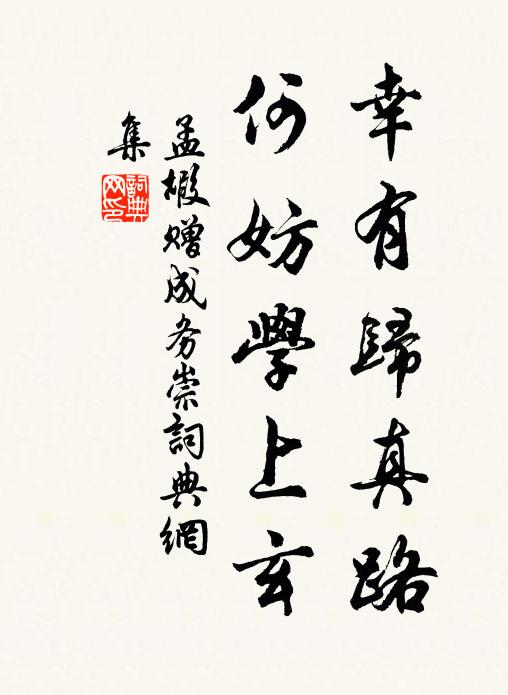 幸有歸真路
何妨學上玄
孟棿贈成务崇詞典網
集
詞典
网印